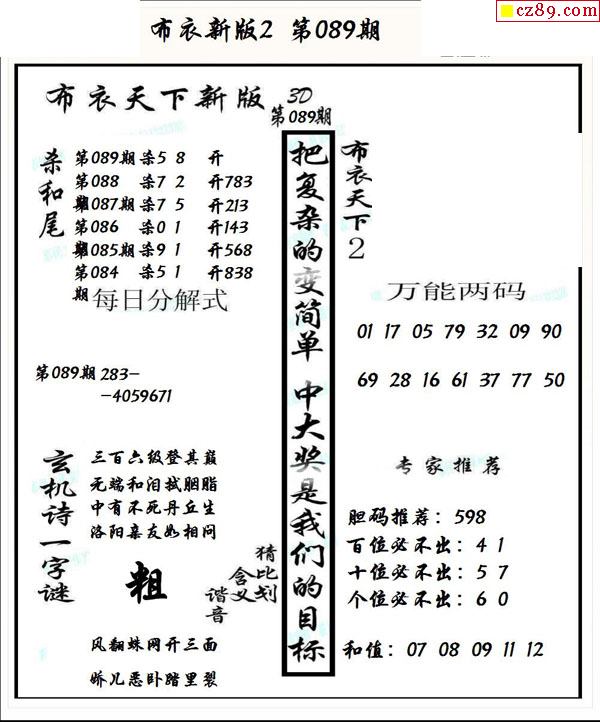 cz89.com
布衣新版2 第089期
布衣天下新版 3D
第089期
杀和尾
第089期杀5 8 开
第088期杀7 2 开783
第087期杀7 5 开213
第086期杀0 1 开143
第085期杀9 1 开568
第084期杀5 1 开838
每日分解式
第089期 283--4059671
把复杂的变简单 中大奖是我们的目标
布衣天下2
万能两码
01 17 05 79 32 09 90
69 28 16 61 37 77 50
玄机诗一字谜
三百六级登其巅
无端和泪拭胭脂
中有不死丹丘生
洛阳亲友如相问
粗
猜比划
含义
谐音
风翻蛛网开三面
娇儿恶卧踏里裂
专家推荐
胆码推荐：598
百位必不出：4 1
十位必不出：5 7
个位必不出：6 0
和值：07 08 09 11 12